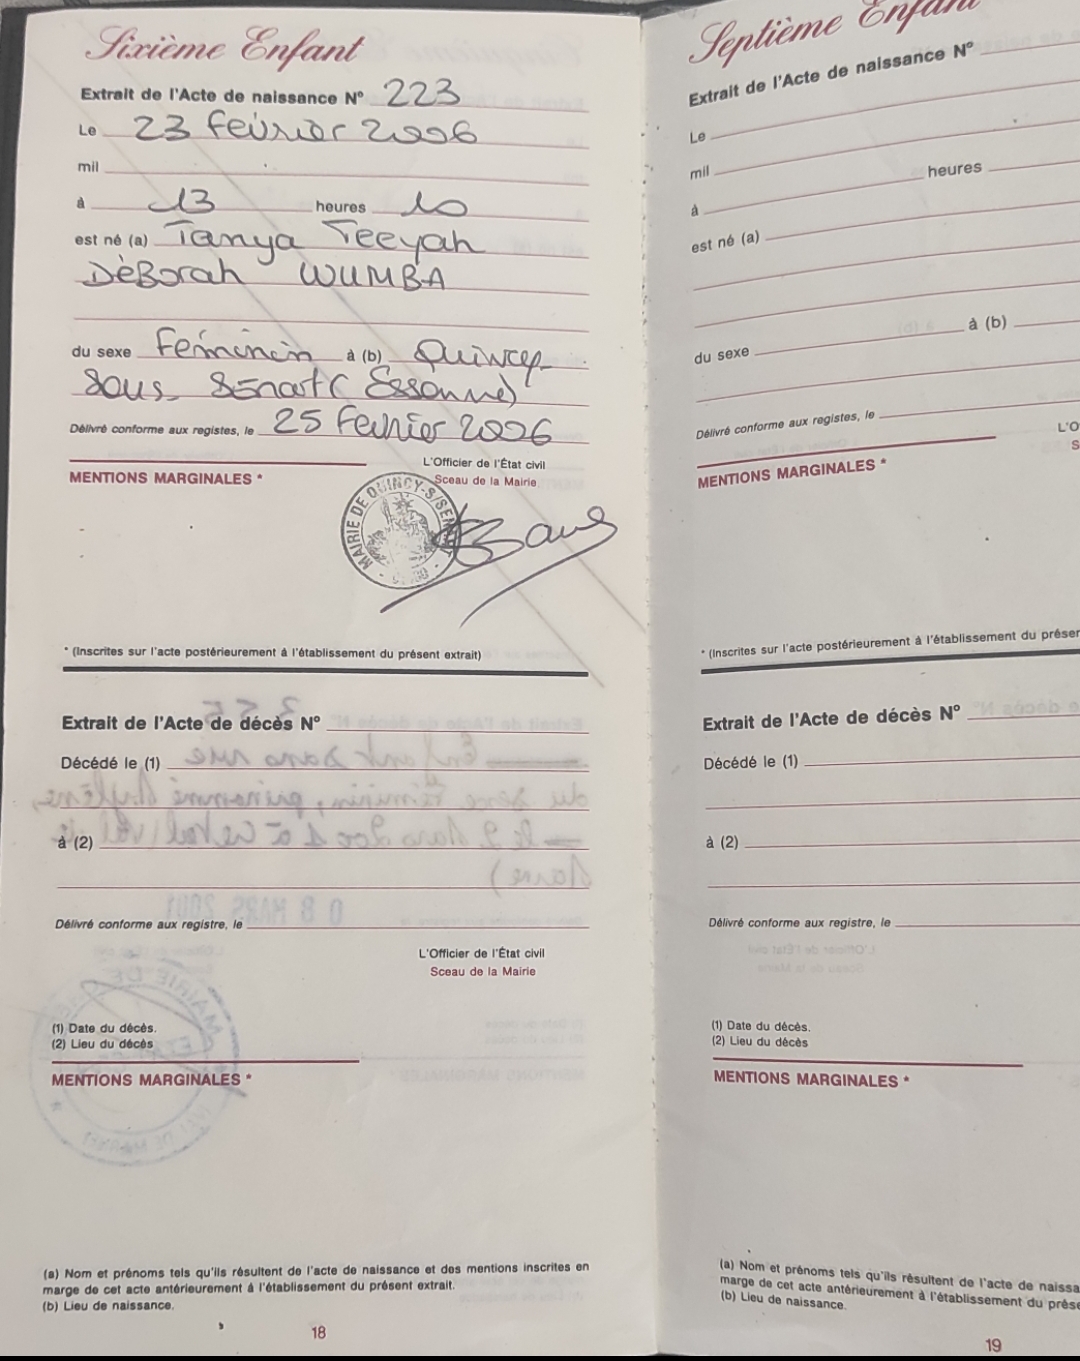 Sixième Enfant
Extrait de l'Acte de naissance N° 223
Le 23 Février 2006
mil
à 13 heures 10
est né (a) Tanya Teeyah
DèBorah WUMBA
du sexe Féminin à (b) Quincy-
Sous- Sénart ( Essonne)
Délivré conforme aux registes, le 25 Février 2006
MENTIONS MARGINALES *
L'Officier de l'État civil
Sceau de la Mairie
MAIRIE DE QUINCY-S/SENART
* (Inscrites sur l'acte postérieurement à l'établissement du présent extrait)
Extrait de l'Acte de décès N°
Décédé le (1)
à (2)
Délivré conforme aux registre, le
L'Officier de l'État civil
Sceau de la Mairie
(1) Date du décès.
(2) Lieu du décès
MENTIONS MARGINALES *
(a) Nom et prénoms tels qu'ils résultent de l'acte de naissance et des mentions inscrites en
marge de cet acte antérieurement à l'établissement du présent extrait.
(b) Lieu de naissance.
18
Septième Enfant
Extrait de l'Acte de naissance N°
Le
mil
à heures
est né (a)
du sexe à (b)
Délivré conforme aux registes, le
L'O
S
MENTIONS MARGINALES *
* (Inscrites sur l'acte postérieurement à l'établissement du présen
Extrait de l'Acte de décès N°
Décédé le (1)
à (2)
Délivré conforme aux registre, le
(1) Date du décès.
(2) Lieu du décès
MENTIONS MARGINALES *
(a) Nom et prénoms tels qu'ils résultent de l'acte de naissa
marge de cet acte antérieurement à l'établissement du prése
(b) Lieu de naissance.
19